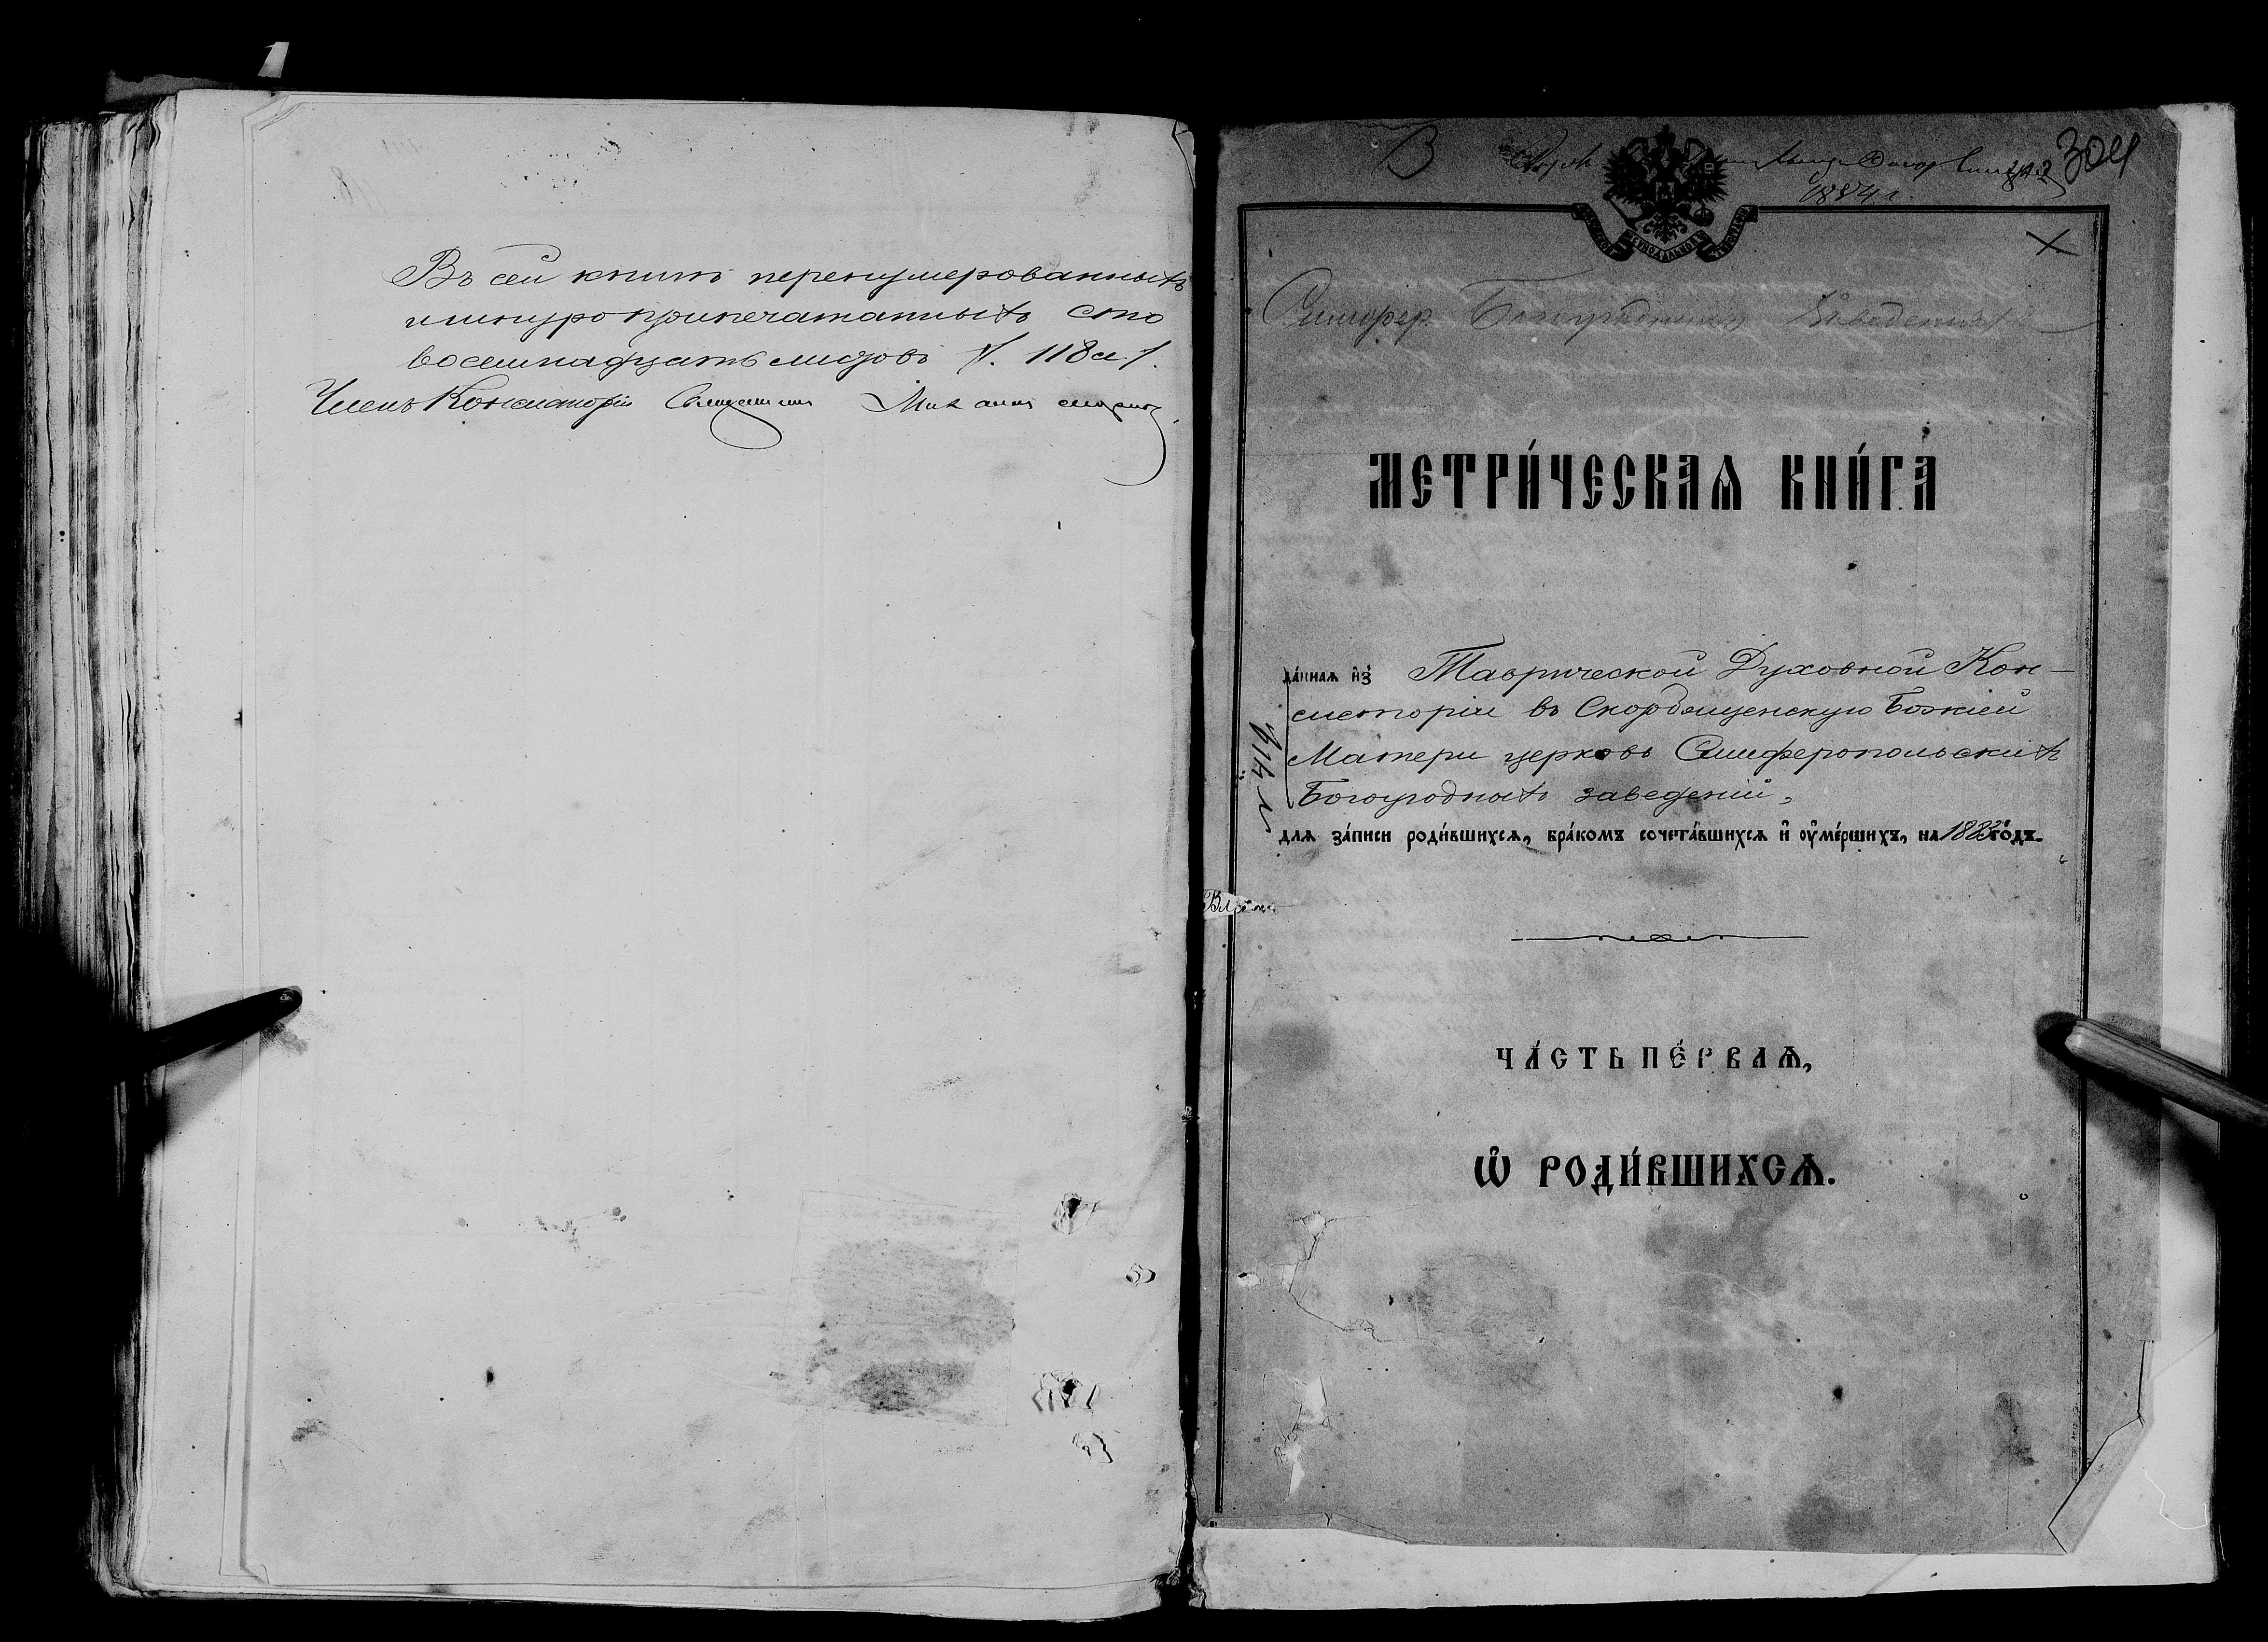 Въ сей книгѣ перенумерованныхъ
и шнуроприпечатанныхъ сто
восемнадцать листовъ /. 118 л. /.
Членъ Консисторіи Священникъ Михаилъ
В
304
1884 г.
Симфер. Богоугодныхъ Заведеній
МЕТРИ́ЧЕСКАѦ КНИ́ГА
да́ннаѧ и҆з̾ Таврической Духовной Кон-
систоріи въ Скорбященскую Божіей
Матери церковь Симферопольскихъ
Богоугодныхъ заведеній,
для за́писи роди́вшихсѧ, бра́комъ сочета́вшихсѧ и҆ ᲂу҆ме́ршихъ, на 1883 годъ.
ЧА́СТЬ ПЕ́РВАѦ,
Ѡ҆ РОДИ́ВШИХСѦ.